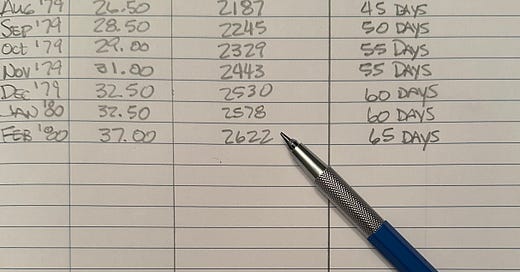 Aug '79 26.50 2187 45 DAYS
SEP '79 28.50 2245 50 DAYS
Oct '79 29.00 2329 55 DAYS
Nov '79 31.00 2443 55 DAYS
DEC '79 32.50 2530 60 DAYS
JAN '80 32.50 2578 60 DAYS
FEB '80 37.00 2622 65 DAYS